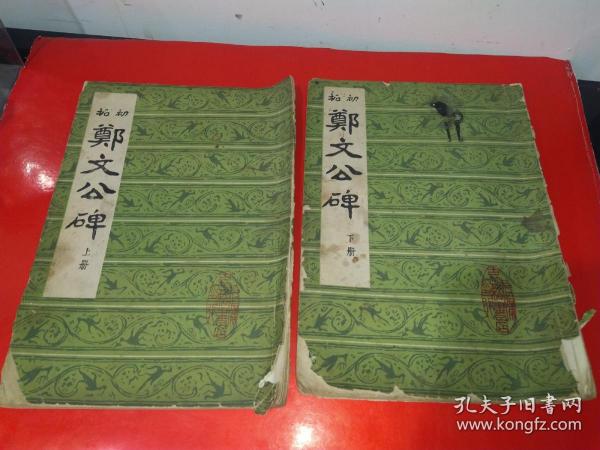 初拓
鄭文公碑
上册
初拓
鄭文公碑
下册
孔夫子旧書网
www.kongfz.com